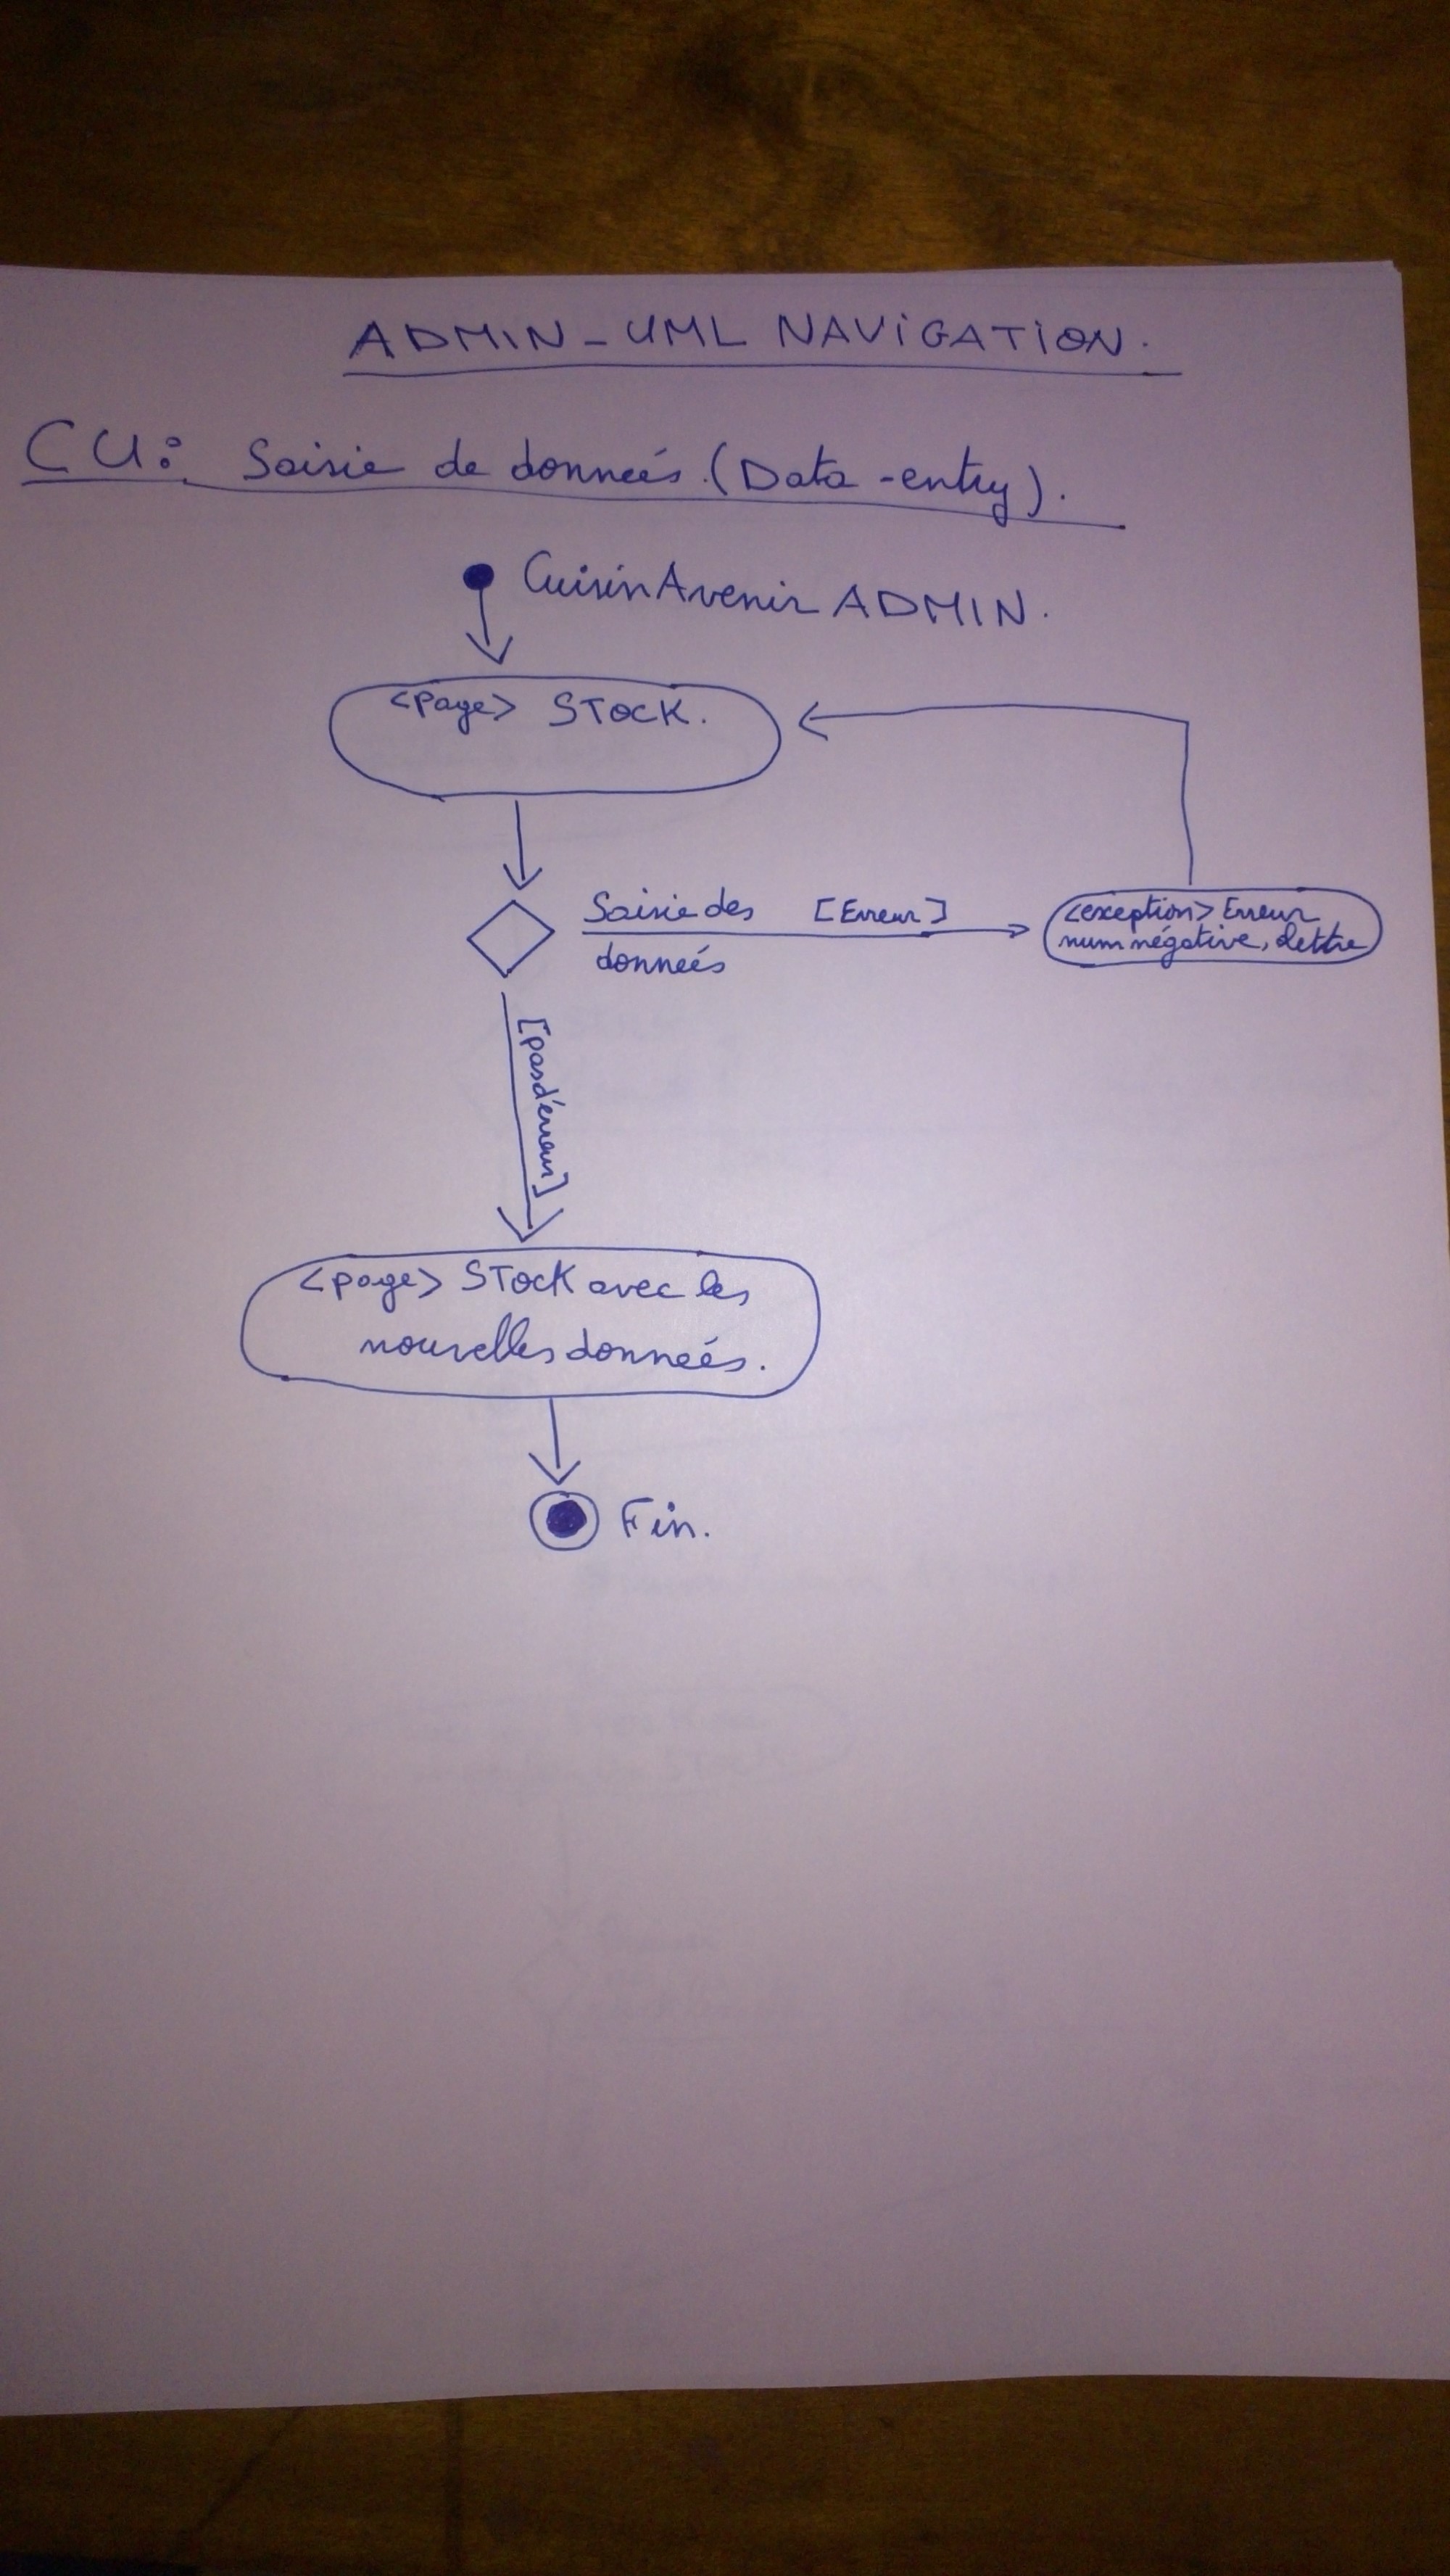 ADMIN - UML NAVIGATION.
CU: Saisie de données (Data-entry).
CuisinAvenir ADMIN.
<page> STOCK.
Saisie des [Erreur]
données
<exception> Erreur
num négative, lettre
[pas d'erreur]
<page> STOCK avec les
nouvelles données.
Fin.